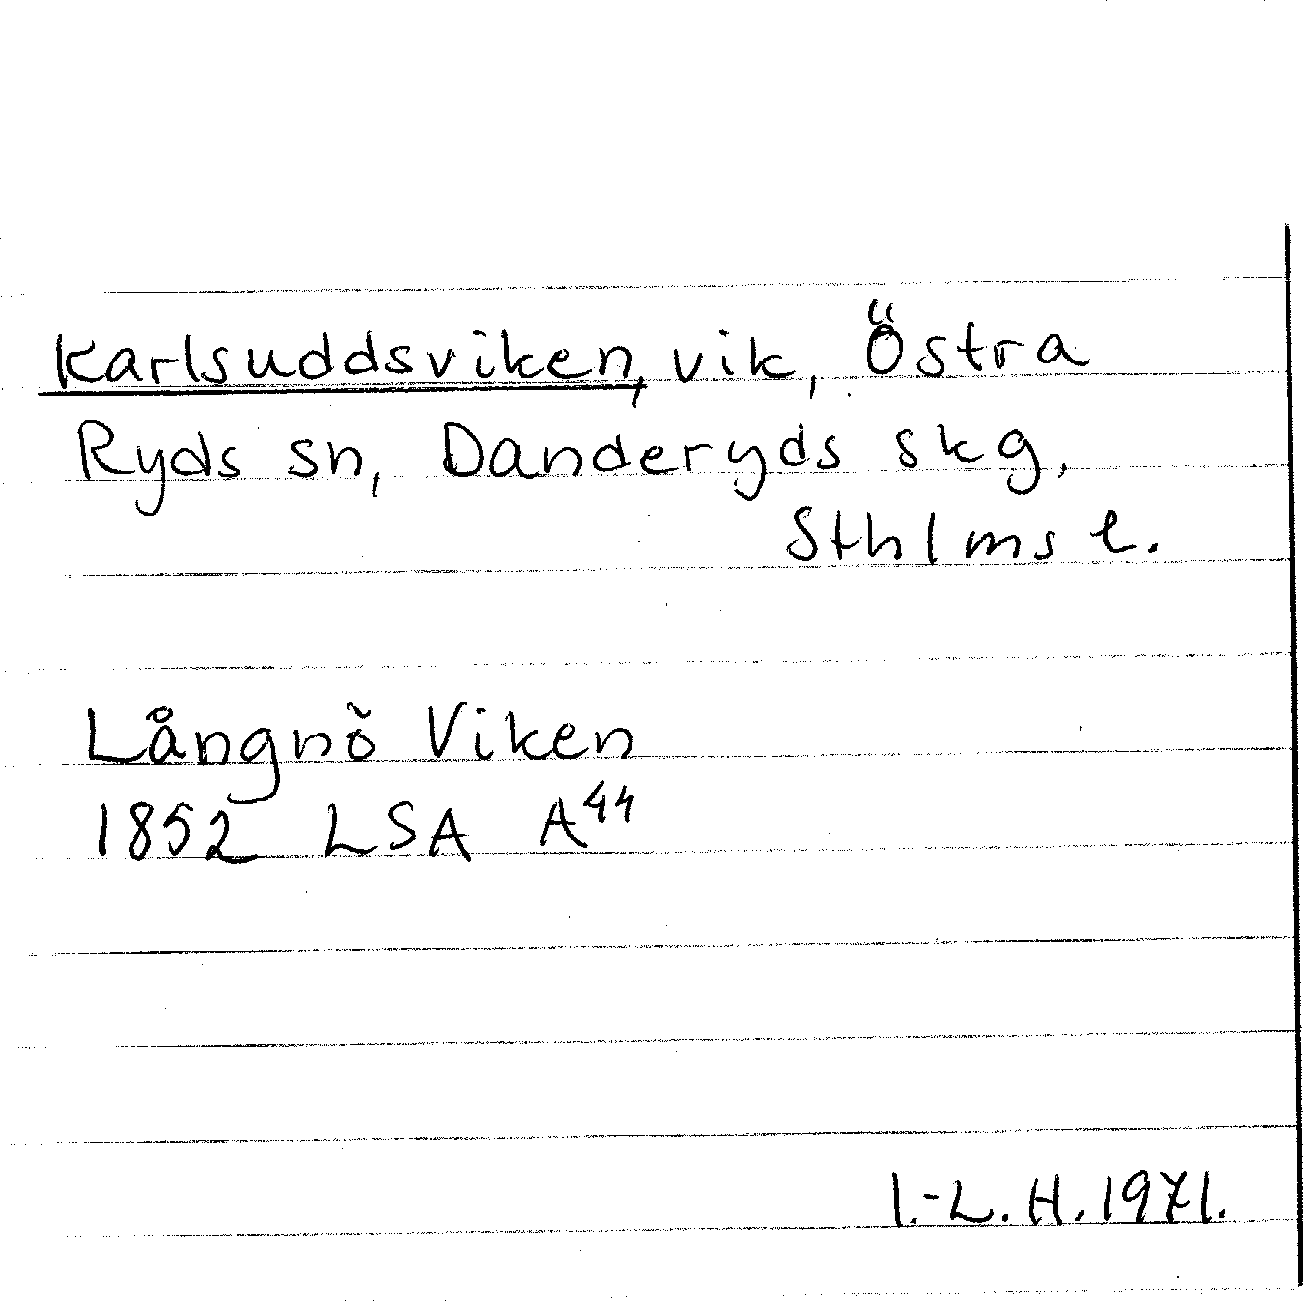 Karlsuddsviken, vik, Östra
Ryds sn, Danderyds skg,
Sthlms l.
Långnö Viken
1852 LSA A44
I.-L. H. 1971.